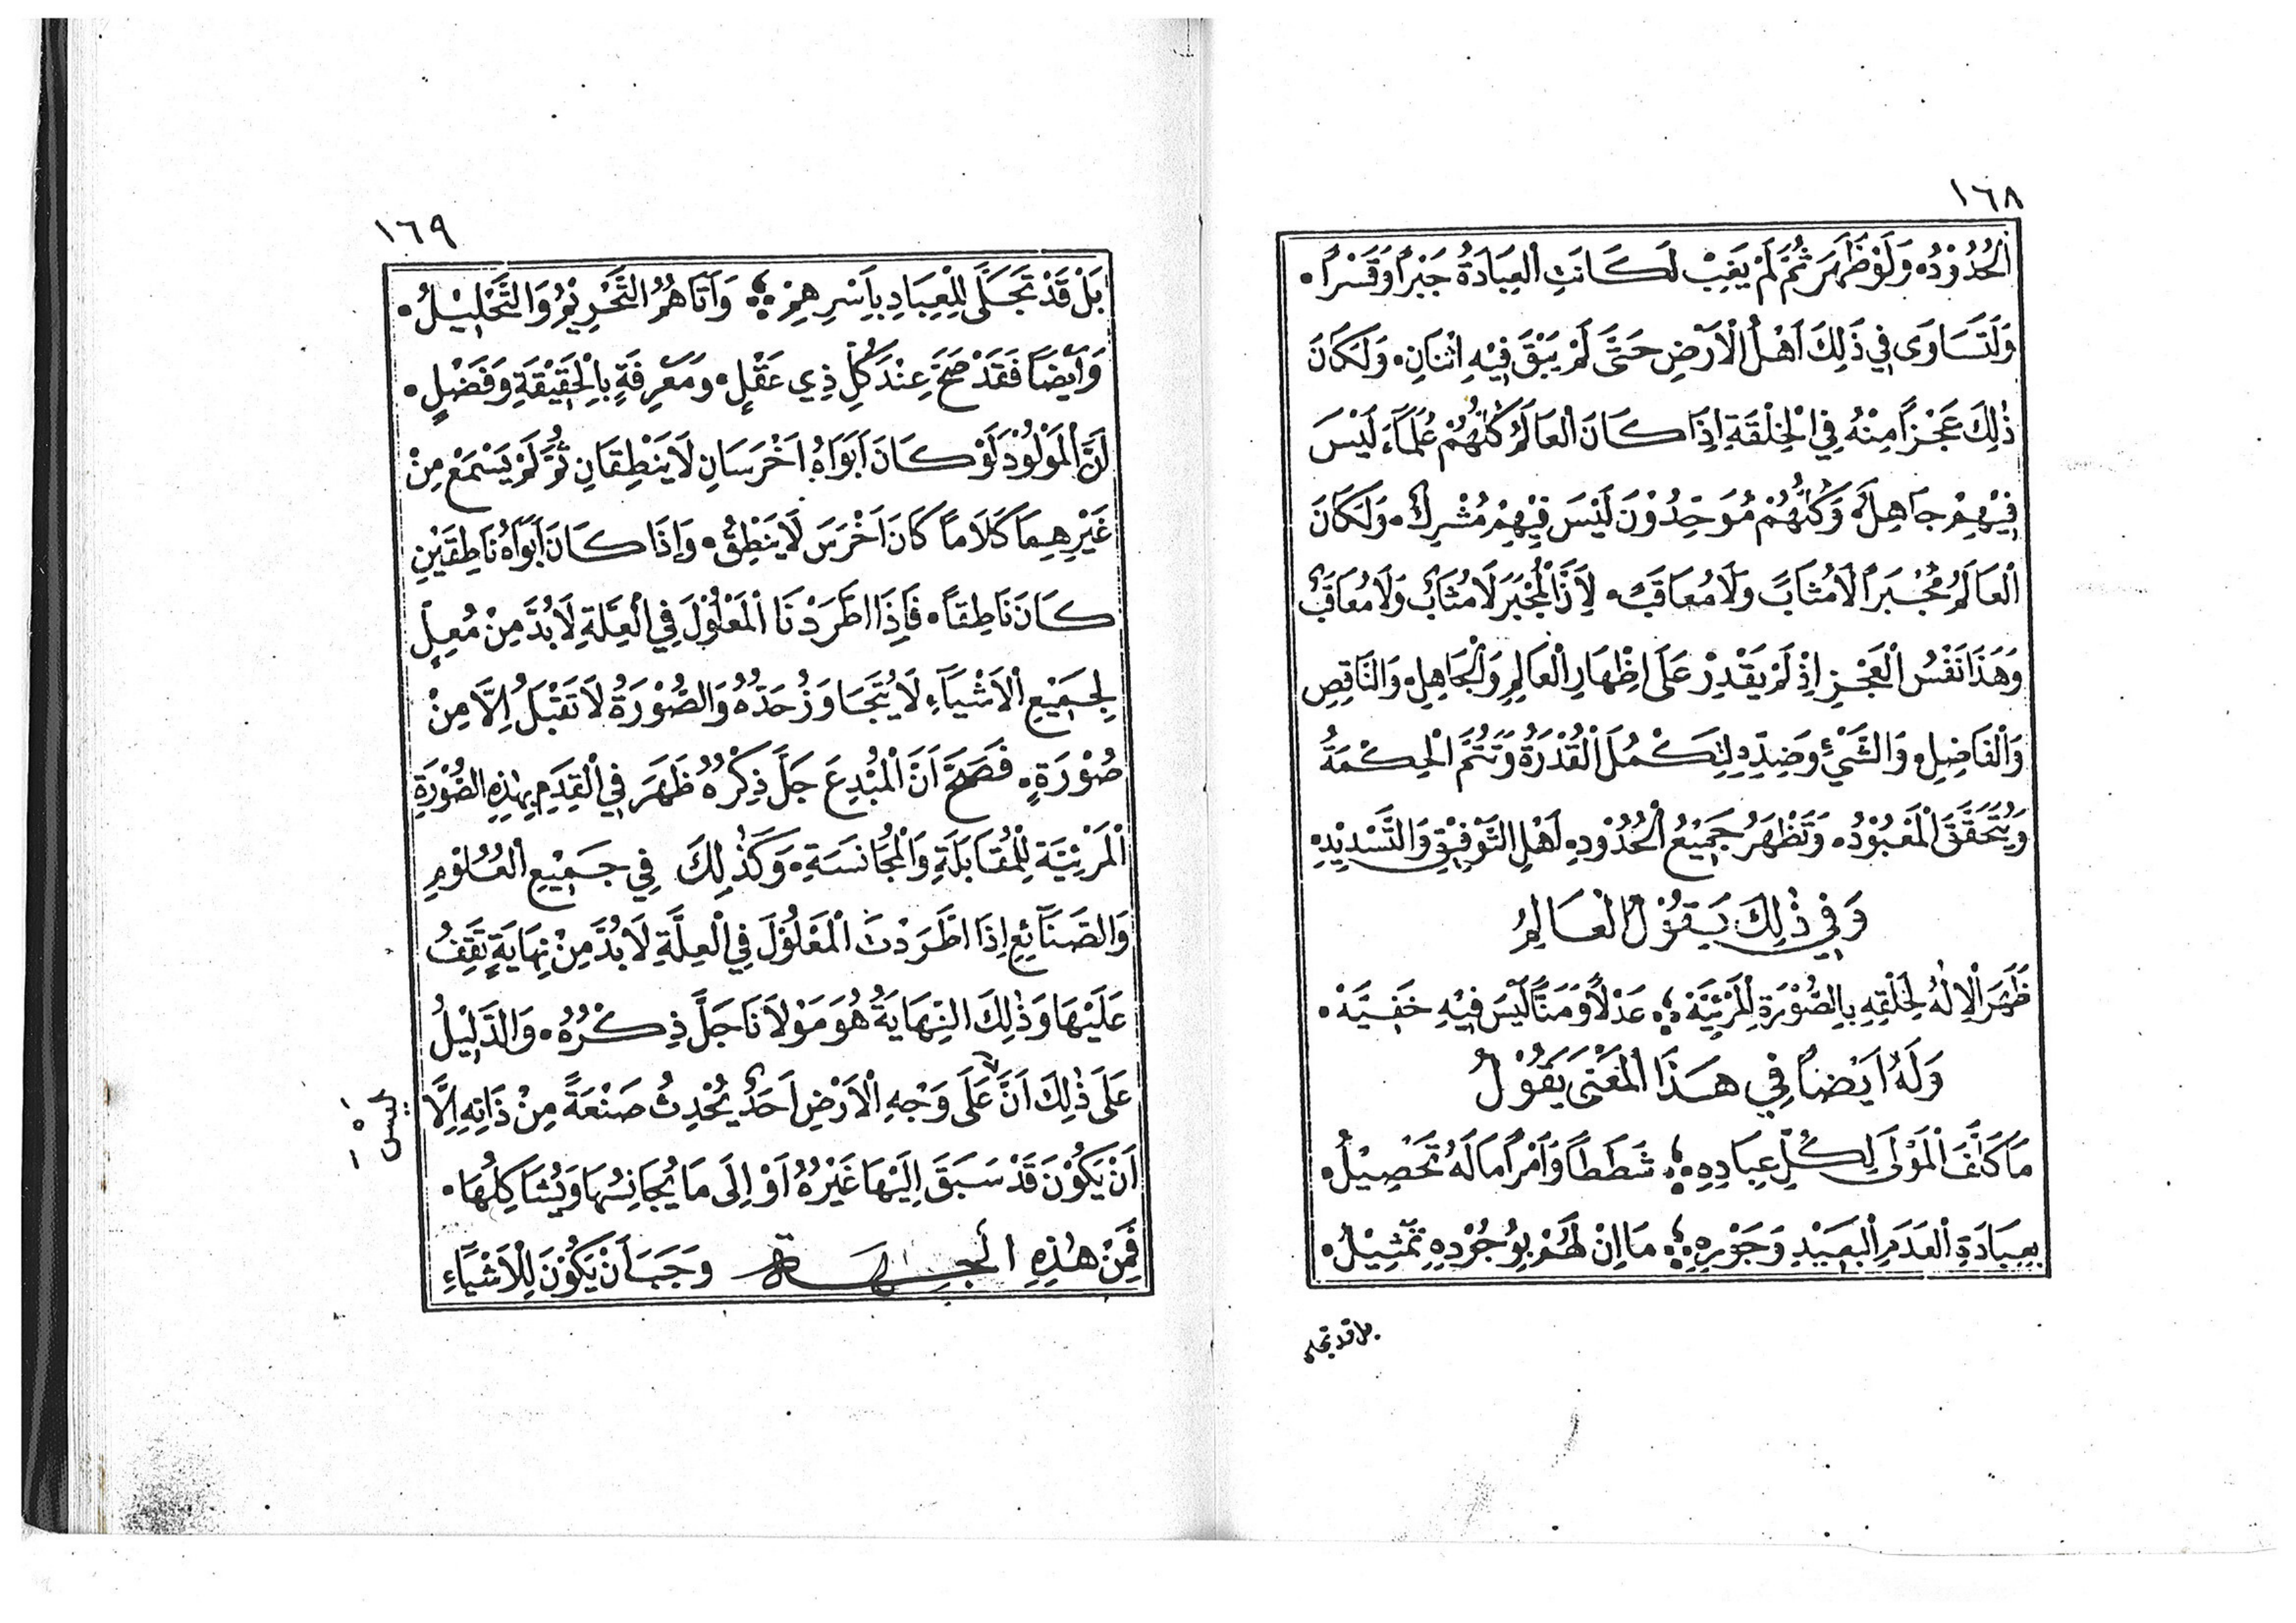 ١٦٨
الْحُدُوْدُ. وَلَوْ ظَهَرَ ثُمَّ لَمْ يَغِبْ لَكَانَتِ الْعِبَادَةُ جَبْراً وَقَسْراً.
وَلَتَسَاوَى فِي ذَلِكَ اَهْلُ الْاَرْضِ حَتَّى لَمْ يَبْقَ فِيْهِ اثْنَانِ. وَلَكَانَ
ذٰلِكَ عَجْزاً مِنْهُ فِي الْخِلْقَةِ اِذَا كَانَ الْعَالَمُ كُلُّهُمْ عُلَمَآءَ لَيْسَ
فِيْهِمْ جَاهِلٌ. وَكُلُّهُمْ مُوَحِّدُوْنَ لَيْسَ فِيْهِمْ مُشْرِكٌ. وَلَكَانَ
الْعَالَمُ مُجْبَراً لَا مُثَابٌ وَلَا مُعَاقَبٌ. لِأَنَّ الْمُجْبَرَ لَا مُثَابٌ وَلَا مُعَاقَبٌ
وَهَذَا نَفْسُ الْعَجْزِ اِذْ لَمْ يَقْدِرْ عَلَى اِظْهَارِ الْعَالِمِ وَالْجَاهِلِ. وَالنَّاقِصِ
وَالْفَاضِلِ. وَالشَّيْءِ وَضِدِّهِ لِتَكْمُلَ الْقُدْرَةُ وَتَتِمَّ الْحِكْمَةُ
وَيَتَحَقَّقَ الْمَعْبُوْدُ. وَتَظْهَرُ جَمِيْعُ الْحُدُوْدِ. اَهْلِ التَّوْفِيْقِ وَالتَّسْدِيْدِ.
وَفِي ذٰلِكَ يَقُوْلُ الْعَالِمُ
ظَهَرَ الْاِلٰهُ لِخَلْقِهِ بِالصُّوْرَةِ الْمَرْئِيَّةْ ؛ عَدْلاً وَمَنّاً لَيْسَ فِيْهِ خَفِيَّهْ.
وَلَهُ اَيْضاً فِي هَذَا الْمَعْنَى يَقُوْلُ
مَا كَلَّفَ الْمَوْلَى لِكُلِّ عِبَادِهِ ؛ شَطَطاً وَاَمْراً مَا لَهُ تَحْصِيْلُ.
بِعِبَادَةِ الْعَدَمِ الْبَعِيْدِ وَجَوْرِهِ ؛ مَا اِنْ لَهُمْ بِوُجُوْدِهِ تَمْثِيْلُ.
بل قد تجلى
١٦٩
بَلْ قَدْ تَجَلَّى لِلْعِبَادِ بِاَسْرِهِمْ ؛ وَاَتَاهُمُ التَّحْرِيْمُ وَالتَّحْلِيْلُ.
وَاَيْضاً فَقَدْ صَحَّ عِنْدَ كُلِّ ذِي عَقْلٍ. وَمَعْرِفَةٍ بِالْحَقِيْقَةِ وَفَضْلٍ.
اَنَّ الْمَوْلُوْدَ لَوْ كَانَ اَبَوَاهُ اَخْرَسَانِ لَا يَنْطِقَانِ ثُمَّ لَمْ يَسْمَعْ مِنْ
غَيْرِهِمَا كَلَاماً كَانَ اَخْرَسَ لَا يَنْطِقُ. وَاِذَا كَانَ اَبَوَاهُ نَاطِقَيْنِ
كَانَ نَاطِقاً. فَاِذَا اطَّرَدْنَا الْمَعْلُوْلَ فِي الْعِلَّةِ لَا بُدَّ مِنْ مُعِلٍّ
لِجَمِيْعِ الْاَشْيَآءِ لَا يُتَجَاوَزُ حَدُّهُ وَالصُّوْرَةُ لَا تَقْبَلُ اِلَّا مِنْ
صُوْرَةٍ. فَصَحَّ اَنَّ الْمُبْدِعَ جَلَّ ذِكْرُهُ ظَهَرَ فِي الْقِدَمِ بِهٰذِهِ الصُّوْرَةِ
الْمَرْئِيَّةِ لِلْمُقَابَلَةِ وَالْمُجَانَسَةِ. وَكَذٰلِكَ فِي جَمِيْعِ الْعُلُوْمِ
وَالصَّنَآئِعِ اِذَا اطَّرَدْتَ الْمَعْلُوْلَ فِي الْعِلَّةِ لَا بُدَّ مِنْ نِهَايَةٍ تَقِفُ
عَلَيْهَا وَذٰلِكَ النِّهَايَةُ هُوَ مَوْلَانَا جَلَّ ذِكْرُهُ. وَالدَّلِيْلُ
عَلَى ذٰلِكَ اَنَّ عَلَى وَجْهِ الْاَرْضِ اَحَدٌ يُحْدِثُ صَنْعَةً مِنْ ذَاتِهِ اِلَّا
لَيْسَ
اَنْ يَكُوْنَ قَدْ سَبَقَ اِلَيْهَا غَيْرُهُ اَوْ اِلَى مَا يُجَانِسُهَا وَيُشَاكِلُهَا.
فَمِنْ هٰذِهِ الجهة وَجَبَ اَنْ يَكُوْنَ لِلْاَشْيَآءِ